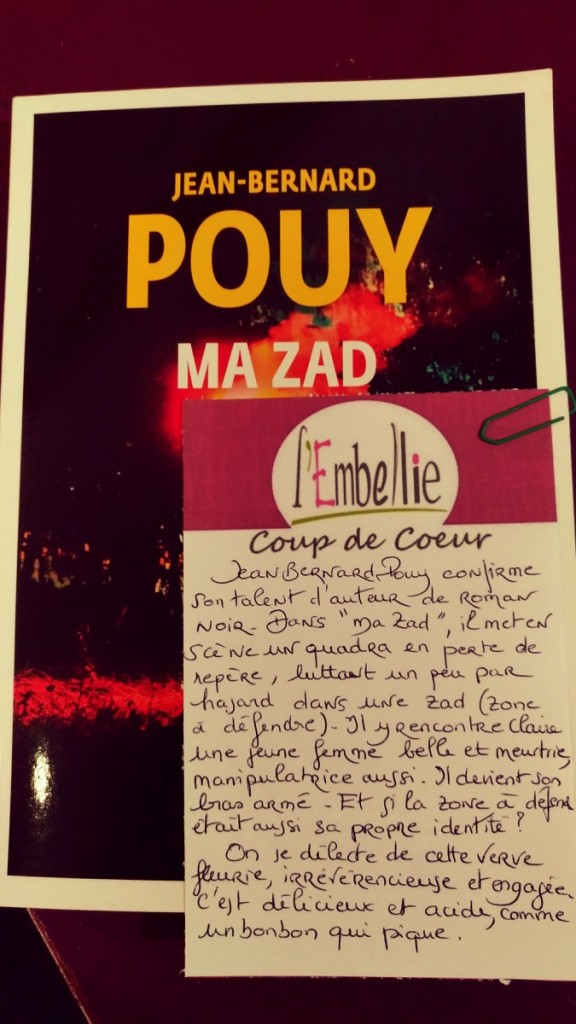 JEAN-BERNARD
POUY
MA ZAD
l'Embellie
Coup de Coeur
Jean Bernard Pouy confirme
son talent d'auteur de roman
noir. Dans "ma Zad", il met en
scène un quadra en perte de
repère, luttant un peu par
hasard dans une zad (zone
à défendre). Il y rencontre Claire
une jeune femme belle et meurtrie,
manipulatrice aussi. Il devient son
bras armé. Et si la zone à défendre
était aussi sa propre identité ?
On se délecte de cette verve
fleurie, irrévérencieuse et engagée.
C'est délicieux et acide, comme
un bonbon qui pique.